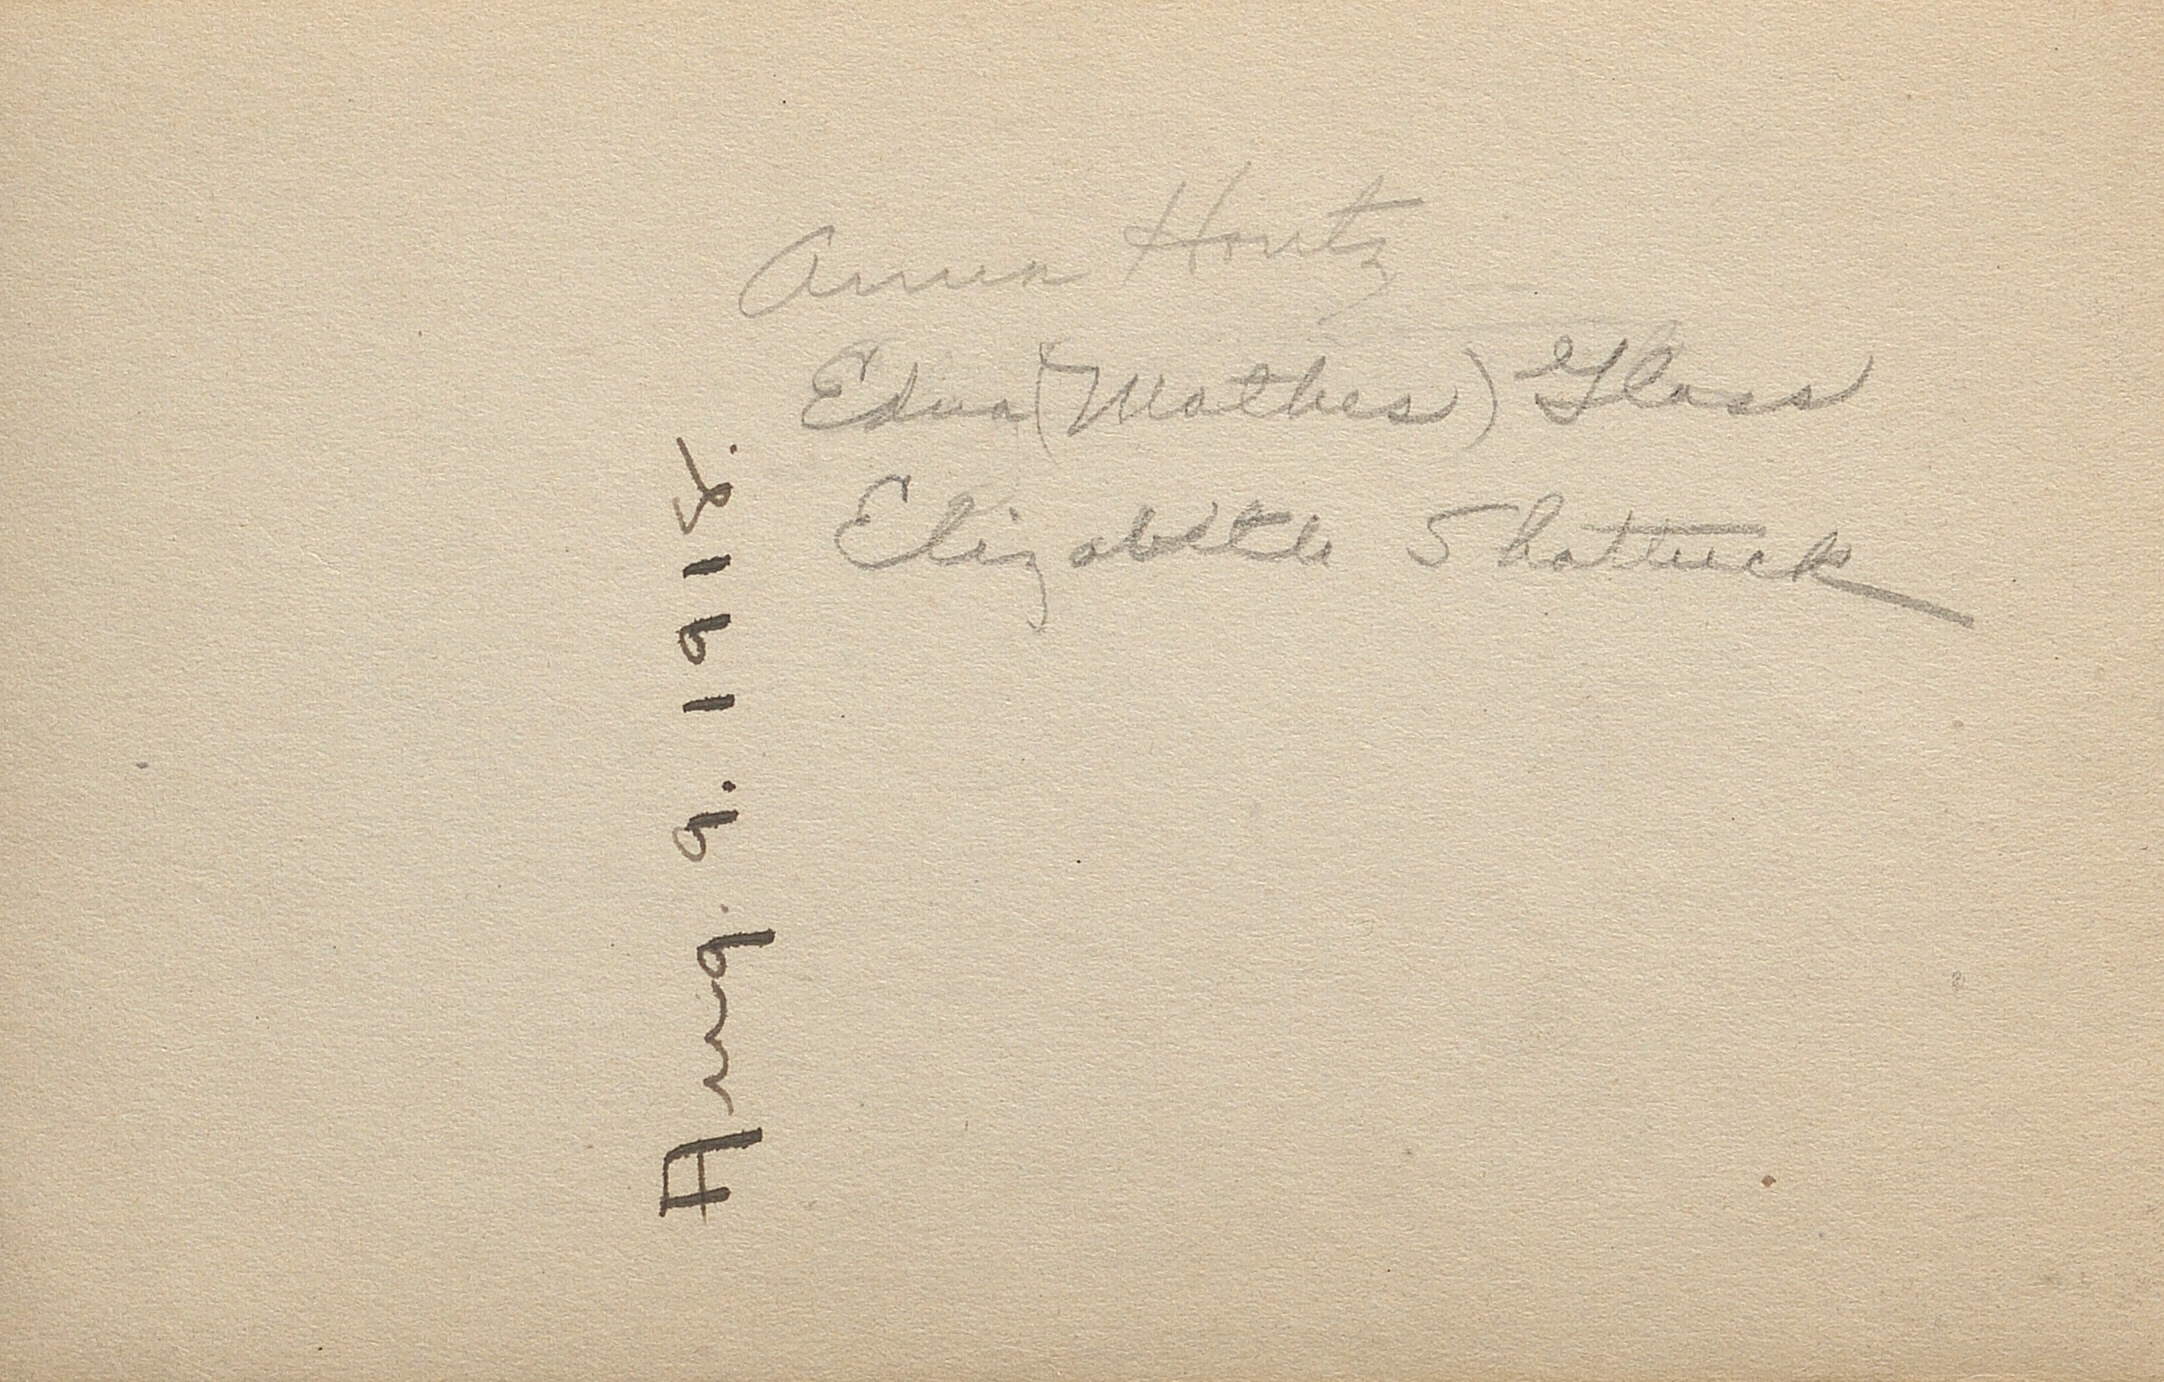 Anna Houtz
Edna (Mathes) Glass
Elizabeth Shattuck
Aug. 9. 1918.